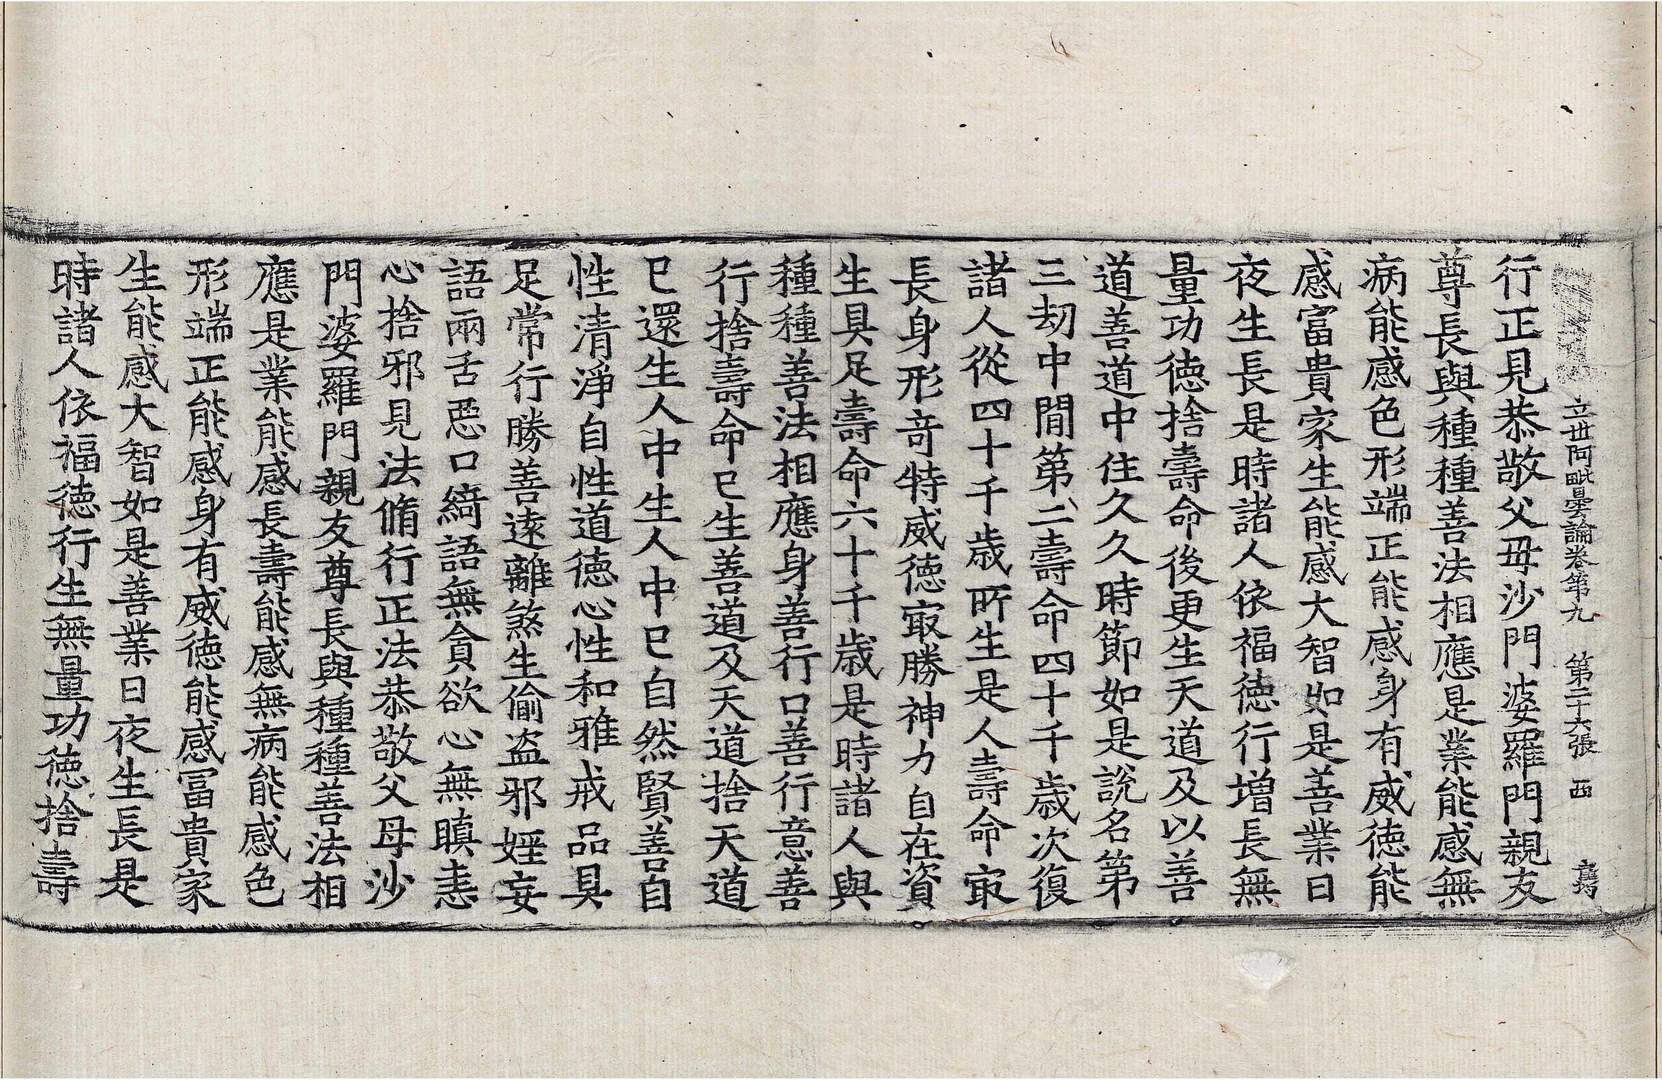 立世阿毗曇論卷第九 第二十六張 西
行正見恭敬父母沙門婆羅門親友
尊長與種種善法相應是業能感無
病能感色形端正能感身有威德能
感富貴家生能感大智如是善業日
夜生長是時諸人依福德行增長無
量功德捨壽命後更生天道及以善
道善道中住久久時節如是說名第
三劫中間第二壽命四十千歲次復
諸人從四十千歲所生是人壽命㝡
長身形竒特威德㝡勝神力自在資
生具足壽命六十千歲是時諸人與
種種善法相應身善行口善行意善
行捨壽命已生善道及天道捨天道
已還生人中生人中已自然賢善自
性清淨自性道德心性和雅戒品具
足常行勝善遠離煞生偷盗邪婬妄
語兩舌惡口綺語無貪欲心無瞋恚
心捨邪見法脩行正法恭敬父母沙
門婆羅門親友尊長與種種善法相
應是業能感長壽能感無病能感色
形端正能感身有威德能感冨貴家
生能感大智如是善業日夜生長是
時諸人依福德行生無量功德捨壽